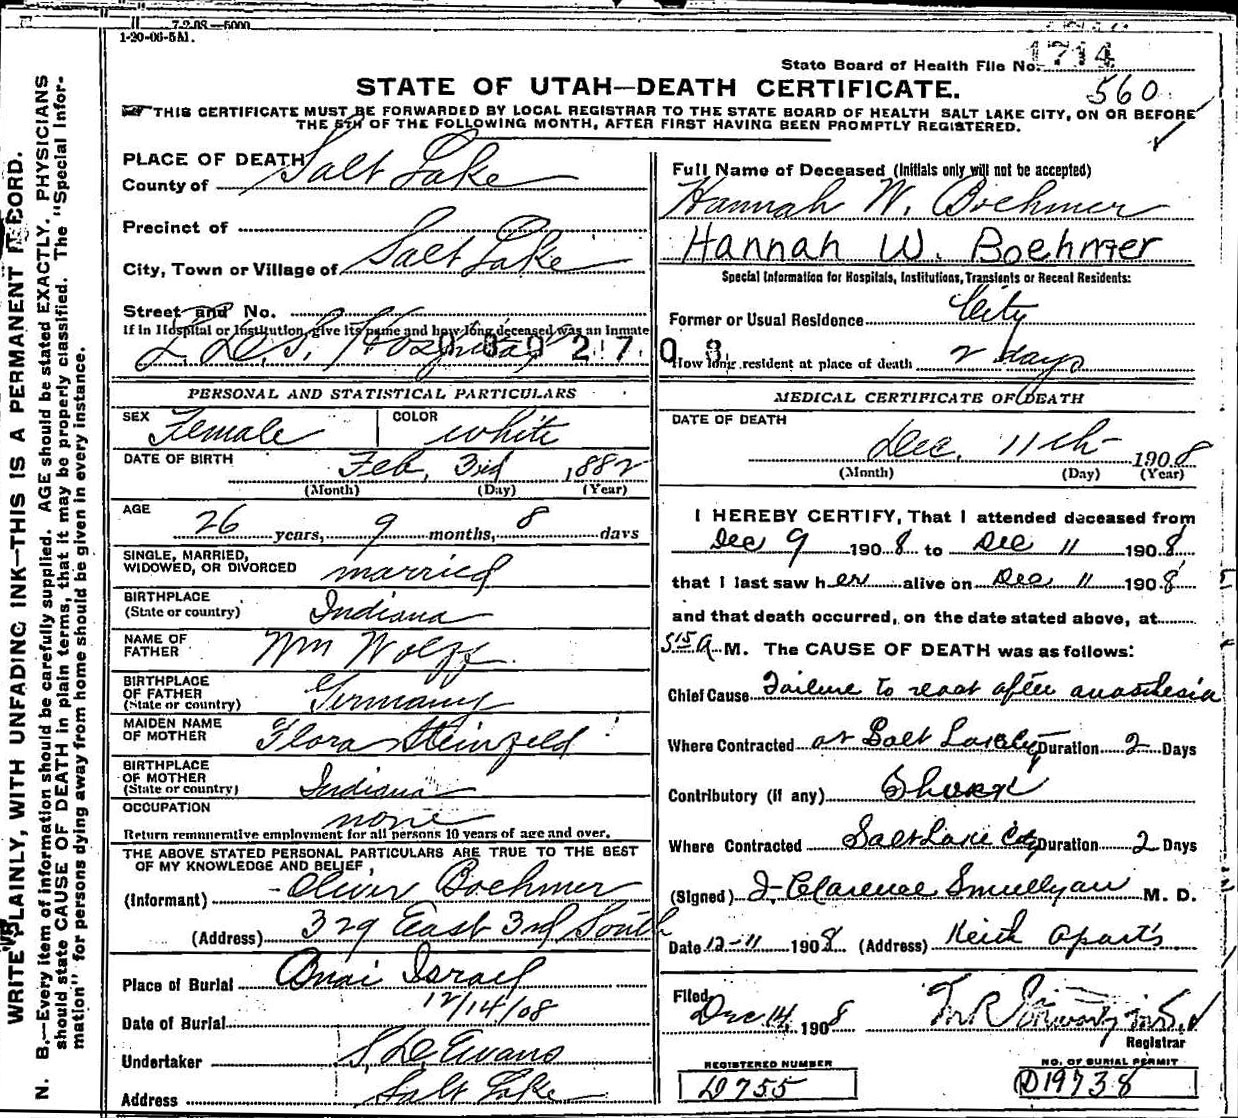 7-2-08—5000
1-20-06-5M.
State Board of Health File No. 1714
STATE OF UTAH—DEATH CERTIFICATE. 560
THIS CERTIFICATE MUST BE FORWARDED BY LOCAL REGISTRAR TO THE STATE BOARD OF HEALTH SALT LAKE CITY, ON OR BEFORE
THE 5TH OF THE FOLLOWING MONTH, AFTER FIRST HAVING BEEN PROMPTLY REGISTERED.
WRITE PLAINLY, WITH UNFADING INK—THIS IS A PERMANENT RECORD.
N. B.—Every item of information should be carefully supplied. AGE should be stated EXACTLY. PHYSICIANS
should state CAUSE OF DEATH in plain terms, that it may be properly classified. The "Special Infor-
mation" for persons dying away from home should be given in every instance.
PLACE OF DEATH
County of Salt Lake
Precinct of
City, Town or Village of Salt Lake
Street and No.
If in Hospital or Institution, give its name and how long deceased was an inmate
L.D.S. Hospital 0 0 9 2 7 0 3
PERSONAL AND STATISTICAL PARTICULARS
SEX Female COLOR white
DATE OF BIRTH Feb, 3rd 1882
(Month) (Day) (Year)
AGE
26 years, 9 months, 8 days
SINGLE, MARRIED,
WIDOWED, OR DIVORCED married
BIRTHPLACE
(State or country) Indiana
NAME OF
FATHER Wm Wolff
BIRTHPLACE
OF FATHER
(State or country) Germany
MAIDEN NAME
OF MOTHER Flora Steinfeld
BIRTHPLACE
OF MOTHER
(State or country) Indiana
OCCUPATION none
Return remunerative employment for all persons 10 years of age and over.
THE ABOVE STATED PERSONAL PARTICULARS ARE TRUE TO THE BEST
OF MY KNOWLEDGE AND BELIEF,
(Informant) Oliver Boehmer
(Address) 329 East 3rd South
Place of Burial Bnai Israel
Date of Burial 12/14/08
Undertaker S. D. Evans
Address Salt Lake
Full Name of Deceased (Initials only will not be accepted)
Hannah W. Boehmer
Hannah W. Boehmer
Special Information for Hospitals, Institutions, Transients or Recent Residents:
Former or Usual Residence City
How long resident at place of death 2 days
MEDICAL CERTIFICATE OF DEATH
DATE OF DEATH
Dec. 11th 1908
(Month) (Day) (Year)
I HEREBY CERTIFY, That I attended deceased from
Dec 9 1908 to Dec 11 1908
that I last saw her alive on Dec 11 1908
and that death occurred, on the date stated above, at
515 A M. The CAUSE OF DEATH was as follows:
Chief Cause Failure to react after anasthesia
Where Contracted at Salt Lake City Duration 2 Days
Contributory (if any) Shock
Where Contracted Salt Lake City Duration 2 Days
(Signed) J Clarence Smullyan M. D.
Date 12-11 1908 (Address) Keith Apart's
Filed
Dec 14, 1908
Registrar
REGISTERED NUMBER
D755
NO. OF BURIAL PERMIT
D19738